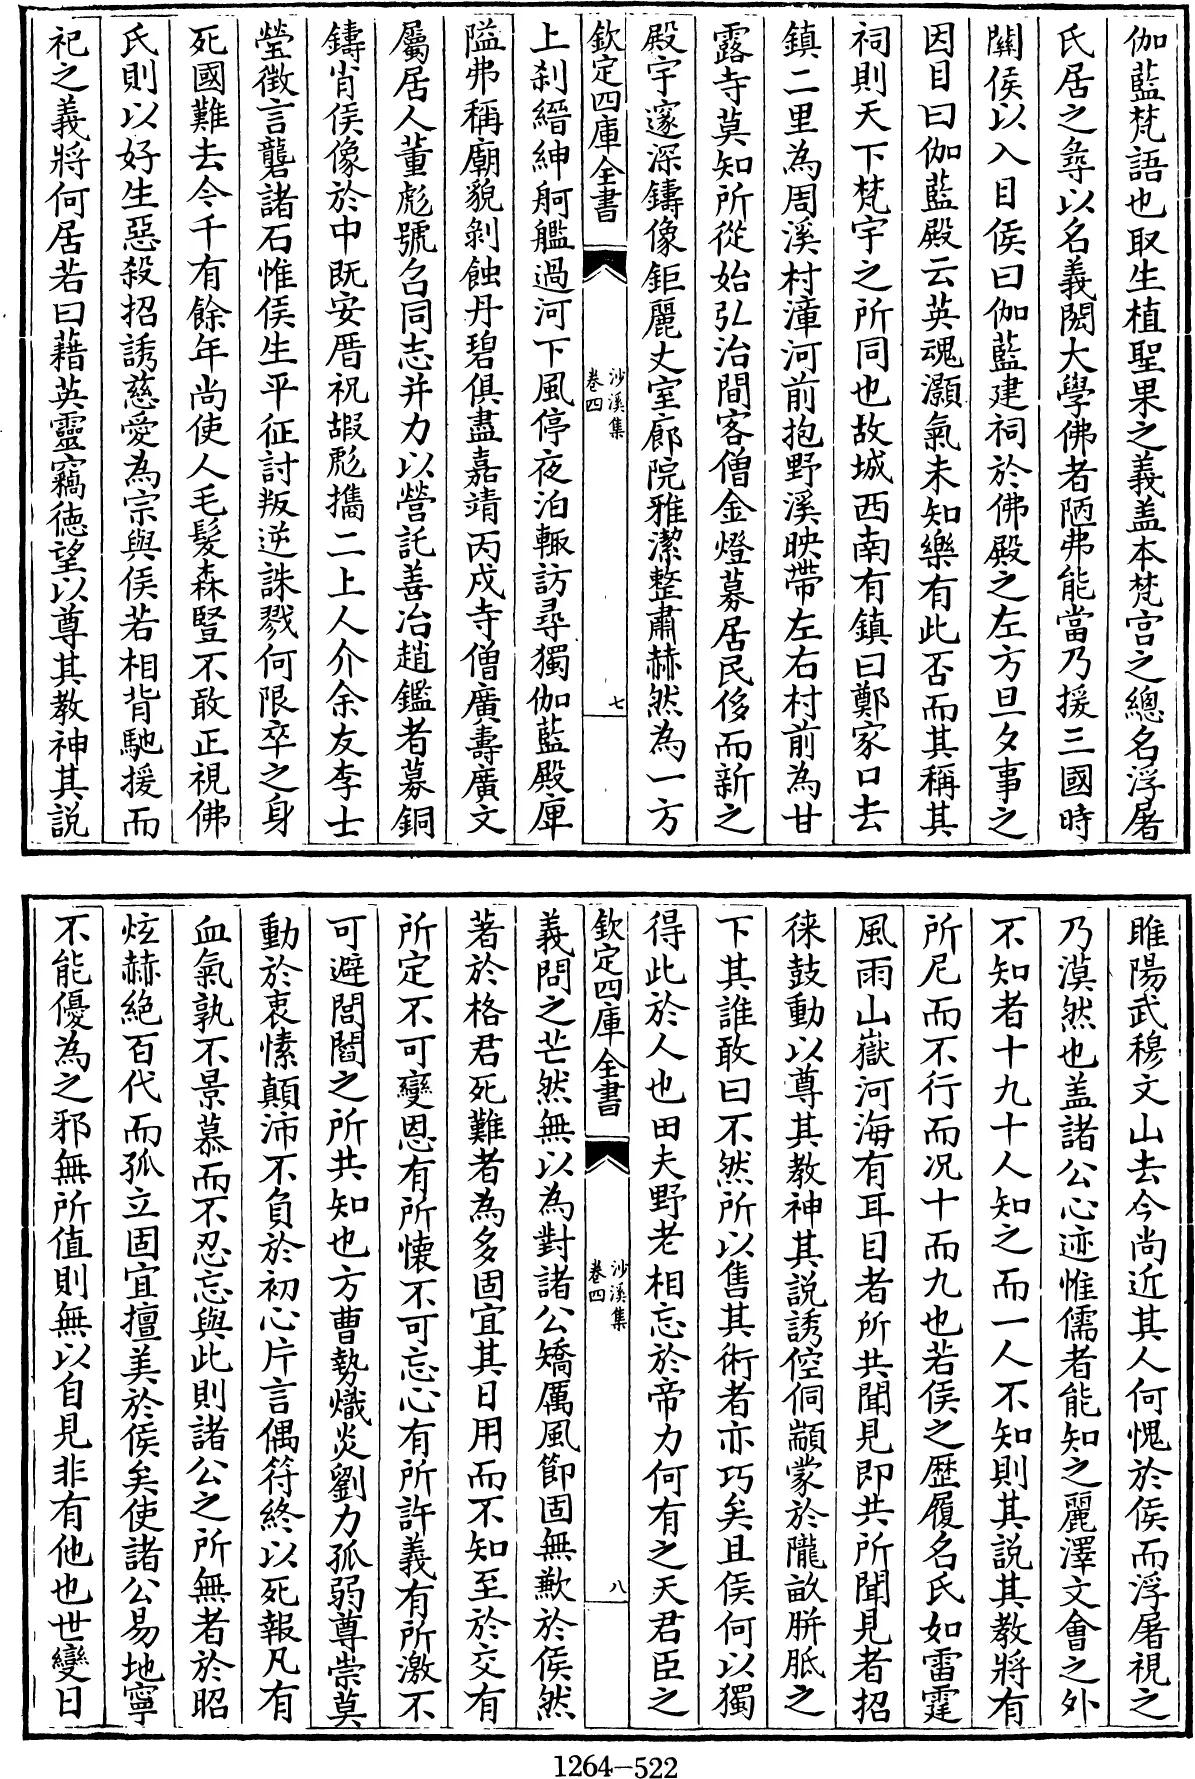 伽藍梵語也取生植聖果之義盖本梵宫之總名浮屠
氏居之彛以名義閎大學佛者陋弗能當乃援三國時
關侯以入目侯曰伽藍建祠於佛殿之左方旦夕事之
因目曰伽藍殿云英魂灝氣未知樂有此否而其稱其
祠則天下梵宇之所同也故城西南有鎮曰鄭家口去
鎮二里為周溪村漳河前抱野溪映帶左右村前為甘
露寺莫知所從始弘治間客僧金燈募居民侈而新之
殿宇邃深鑄像鉅麗丈室廊院雅潔整肅赫然為一方
欽定四庫全書
沙溪集
卷四
七
上刹縉紳舸艦過河下風停夜泊輙訪尋獨伽藍殿庫
隘弗稱廟貌剝蝕丹碧俱盡嘉靖丙戍寺僧廣壽廣文
屬居人董彪號召同志并力以營託善冶趙鑑者募銅
鑄肖侯像於中既安厝祝嘏彪攜二上人介余友李士
瑩徵言礱諸石惟侯生平征討叛逆誅戮何限卒之身
死國難去今千有餘年尚使人毛髮森豎不敢正視佛
氏則以好生惡殺招誘慈愛為宗與侯若相背馳援而
祀之義將何居若曰藉英靈竊徳望以尊其教神其説
睢陽武穆文山去今尚近其人何愧於侯而浮屠視之
乃漠然也盖諸公心迹惟儒者能知之麗澤文會之外
不知者十九十人知之而一人不知則其説其教將有
所尼而不行而况十而九也若侯之歴履名氏如雷霆
風雨山嶽河海有耳目者所共聞見即共所聞見者招
徠鼓動以尊其教神其説誘倥侗顓蒙於隴畝胼胝之
下其誰敢曰不然所以售其術者亦巧矣且侯何以獨
得此於人也田夫野老相忘於帝力何有之天君臣之
欽定四庫全書
沙溪集
卷四
八
義問之芒然無以為對諸公矯厲風節固無歉於侯然
著於格君死難者為多固宜其日用而不知至於交有
所定不可變恩有所懷不可忘心有所許義有所激不
可避閭閻之所共知也方曹勢熾炎劉力孤弱尊崇莫
動於衷愫顛沛不負於初心片言偶符終以死報凡有
血氣孰不景慕而不忍忘與此則諸公之所無者於昭
炫赫絶百代而孤立固宜擅美於侯矣使諸公易地寧
不能優為之邪無所值則無以自見非有他也世變日
1264—522